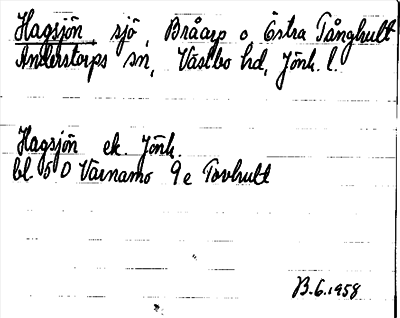 Hagsjön sjö, Bråarp o Östra Tånghult
Anderstorps sn, Västbo hd, Jönk. l.
Hagsjön ek. Jönk.
bl 5 D Värnamo 9e Törhult
B.G.1958